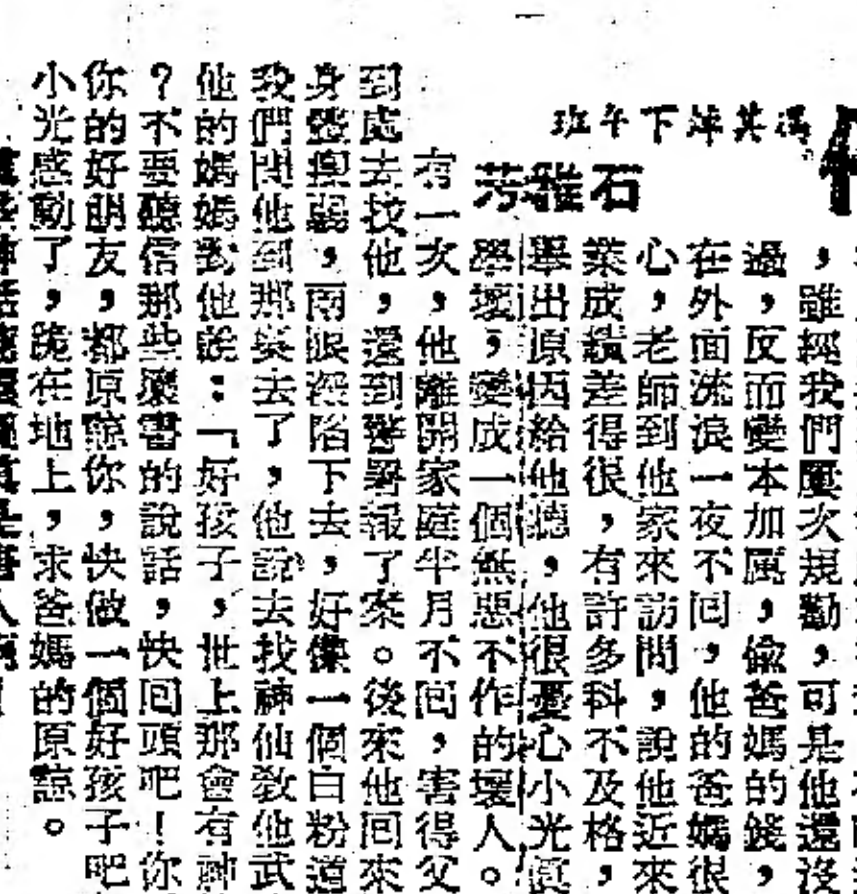 馮其焯下午班
石雅芳
，雖經我們屢次規勸，可是他還沒
過，反而變本加厲，偷爸媽的錢，
在外面流浪一夜不回，他的爸媽很
心，老師到他家來訪問，說他近來
業成績差得很，有許多科不及格，
舉出原因給他聽，他很憂心小光真
學壞，變成一個無惡不作的壞人。
有一次，他離開家庭半月不回，害得父
到處去找他，還到警署報了案。後來他回來
身體很弱，兩眼深陷下去，好像一個白粉道
我們問他到那裏去了，他說去找神仙教他武
他的媽媽對他說：「好孩子，世上那會有神
？不要聽信那些壞書的說話，快回頭吧！你
你的好朋友，都原諒你，快做一個好孩子吧
小光感動了，跪在地上，求爸媽的原諒。